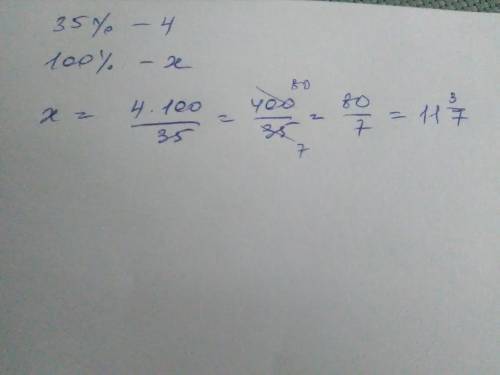 35% - 4
100% - x
x = 4·100/35 = 400/35 80 7 = 80/7 = 11 3/7